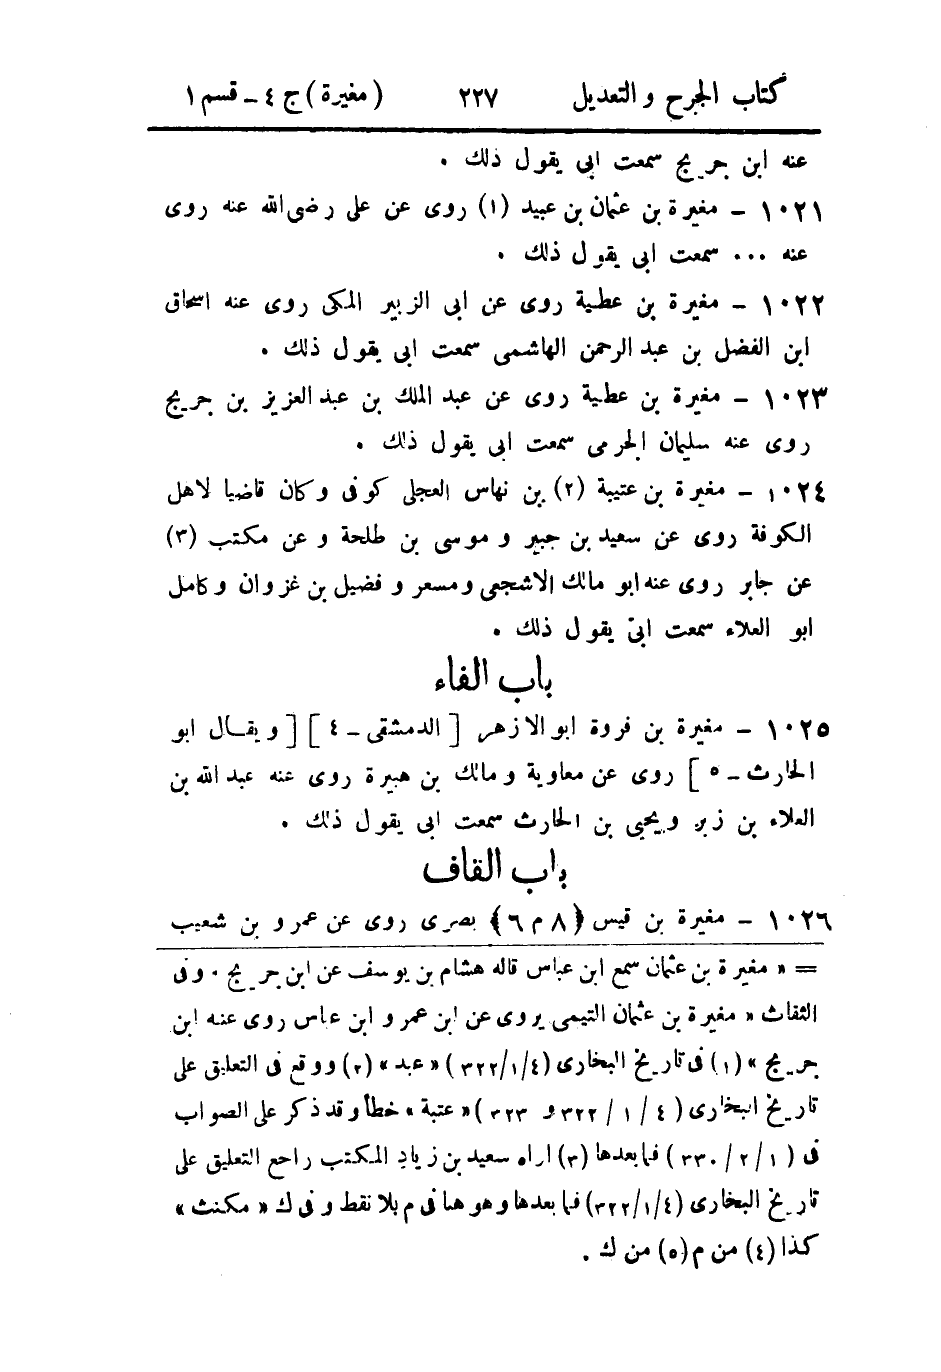 كتاب الجرح و التعديل ٢٢٧ (مغيرة) ج ٤ - قسم ١
عنه ابن جريج سمعت ابى يقول ذلك .
١٠٢١ - مغيرة بن عثمان بن عبيد (١) روى عن على رضى الله عنه روى
عنه ... سمعت ابى يقول ذلك .
١٠٢٢ - مغيرة بن عطية روى عن ابى الزبير المكى روى عنه اسحاق
ابن الفضل بن عبد الرحمن الهاشمى سمعت ابى يقول ذلك .
١٠٢٣ - مغيرة بن عطية روى عن عبد الملك بن عبد العزيز بن جريج
روى عنه سليمان الجرمى سمعت ابى يقول ذلك .
١٠٢٤ - مغيرة بن عتيبة (٢) بن نهاس العجلى كوفى وكان قاضيا لاهل
الكوفة روى عن سعيد بن جبير و موسى بن طلحة و عن مكتب (٣)
عن جابر روى عنه ابو مالك الاشجعى ومسعر و فضيل بن غزوان وكامل
ابو العلاء سمعت ابى يقول ذلك .
باب الفاء
١٠٢٥ - مغيرة بن فروة ابو الازهر [ الدمشقى - ٤ ] [ ويقال ابو
الحارث - ٥ ] روى عن معاوية و مالك بن هبيرة روى عنه عبد الله بن
العلاء بن زبر ويحيى بن الحارث سمعت ابى يقول ذلك .
باب القاف
١٠٢٦ - مغيرة بن قيس (٨ م ٦) بصرى روى عن عمرو بن شعيب
= « مغيرة بن عثمان سمع ابن عباس قاله هشام بن يوسف عن ابن جريج . وفى
الثقات « مغيرة بن عثمان التيمى يروى عن ابن عمر و ابن عباس روى عنه ابن
جريج » (١) فى تاريخ البخارى (٣٢٢/١/٤) « عبد » (٢) ووقع فى التعليق على
تاريخ البخارى (٤ / ١ / ٣٢٢ و ٣٢٣) « عتبة » خطأ وقد ذكر على الصواب
فى (١ / ٢ / ٣٣٠) فما بعدها (٣) اراه سعيد بن زياد المكتب راجع التعليق على
تاريخ البخارى (٣٢٢/١/٤) فما بعدها وهو هنا فى م بلا نقط و فى ك « مكنث »
كذا (٤) من م (٥) من ك .